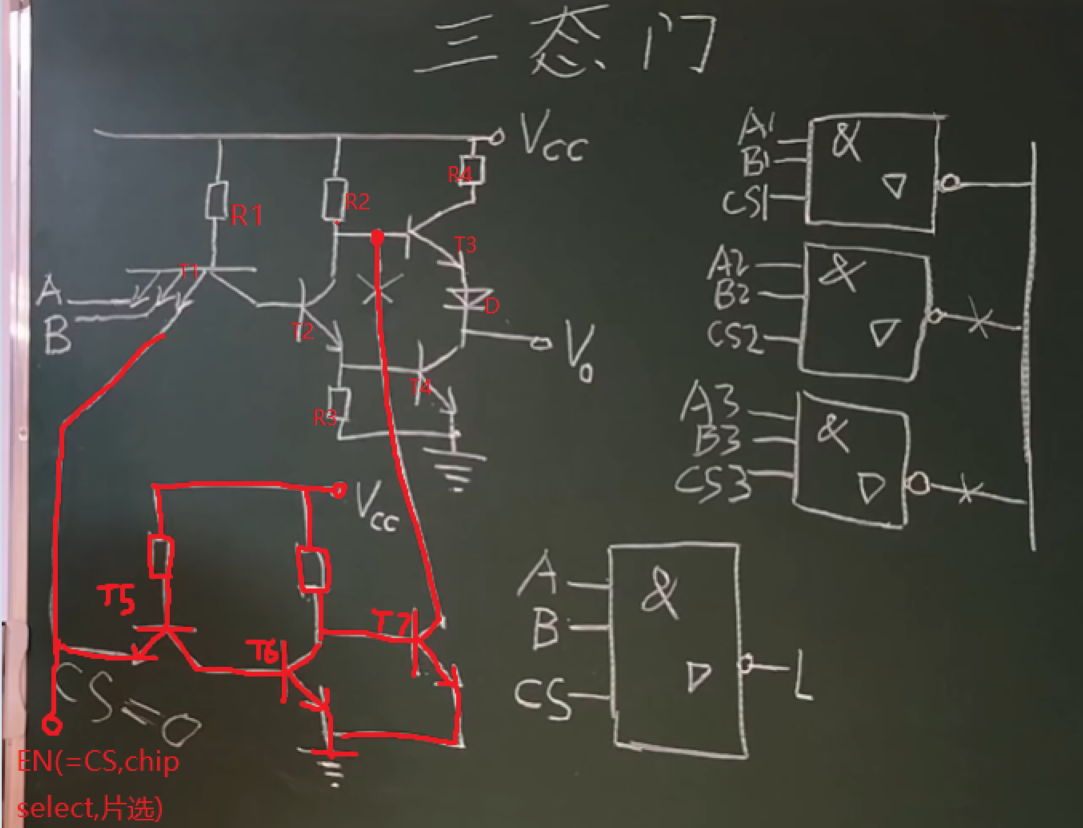 三态门
VCC
R1
R2
R4
T3
T1
A
B
T2
D
Vo
T4
R3
VCC
T5
T6
T7
CS=0
EN(=CS,chip
select,片选)
A1
B1
CS1
&
▷
A2
B2
CS2
&
▷
A3
B3
CS3
&
▷
A
B
CS
&
▷
L